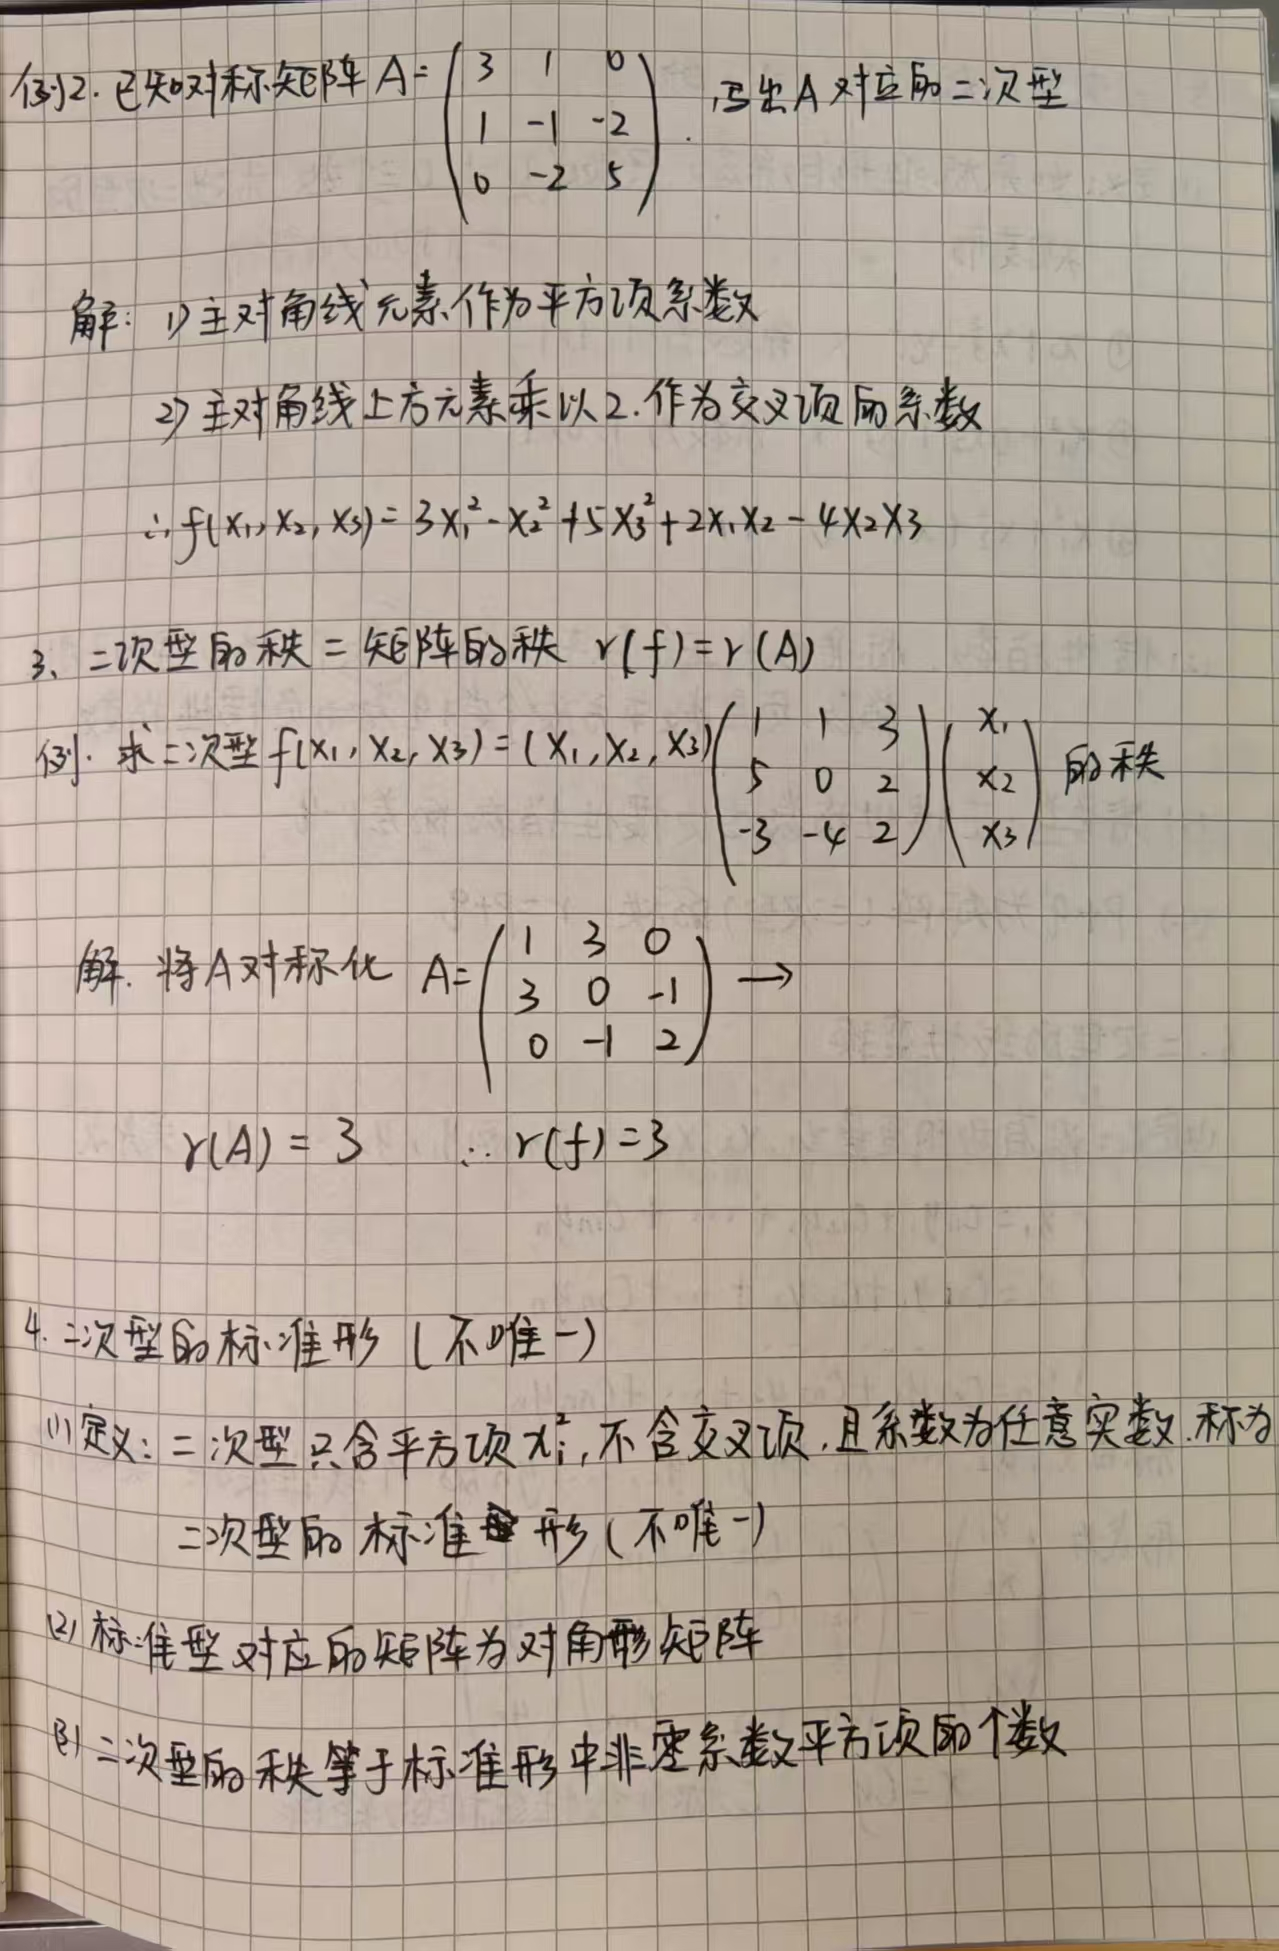 例2. 已知对称矩阵 A= ( 3 1 0
1 -1 -2
0 -2 5 ) . 写出A对应的二次型
解: 1) 主对角线元素作为平方项系数
2) 主对角线上方元素乘以2.作为交叉项的系数
∴ f(x₁, x₂, x₃) = 3x₁² - x₂² + 5x₃² + 2x₁x₂ - 4x₂x₃
3、二次型的秩 = 矩阵的秩 r(f) = r(A)
例. 求二次型 f(x₁, x₂, x₃) = (x₁, x₂, x₃) ( 1 1 3
5 0 2
-3 -4 2 ) ( x₁
x₂
x₃ ) 的秩
解. 将A对称化 A= ( 1 3 0
3 0 -1
0 -1 2 ) →
r(A) = 3 ∴ r(f) = 3
4. 二次型的标准形 (不唯一)
(1) 定义: 二次型只含平方项 xᵢ², 不含交叉项, 且系数为任意实数.称为
二次型的标准形 (不唯一)
(2) 标准型对应的矩阵为对角形矩阵
(3) 二次型的秩等于标准形中非零系数平方项的个数